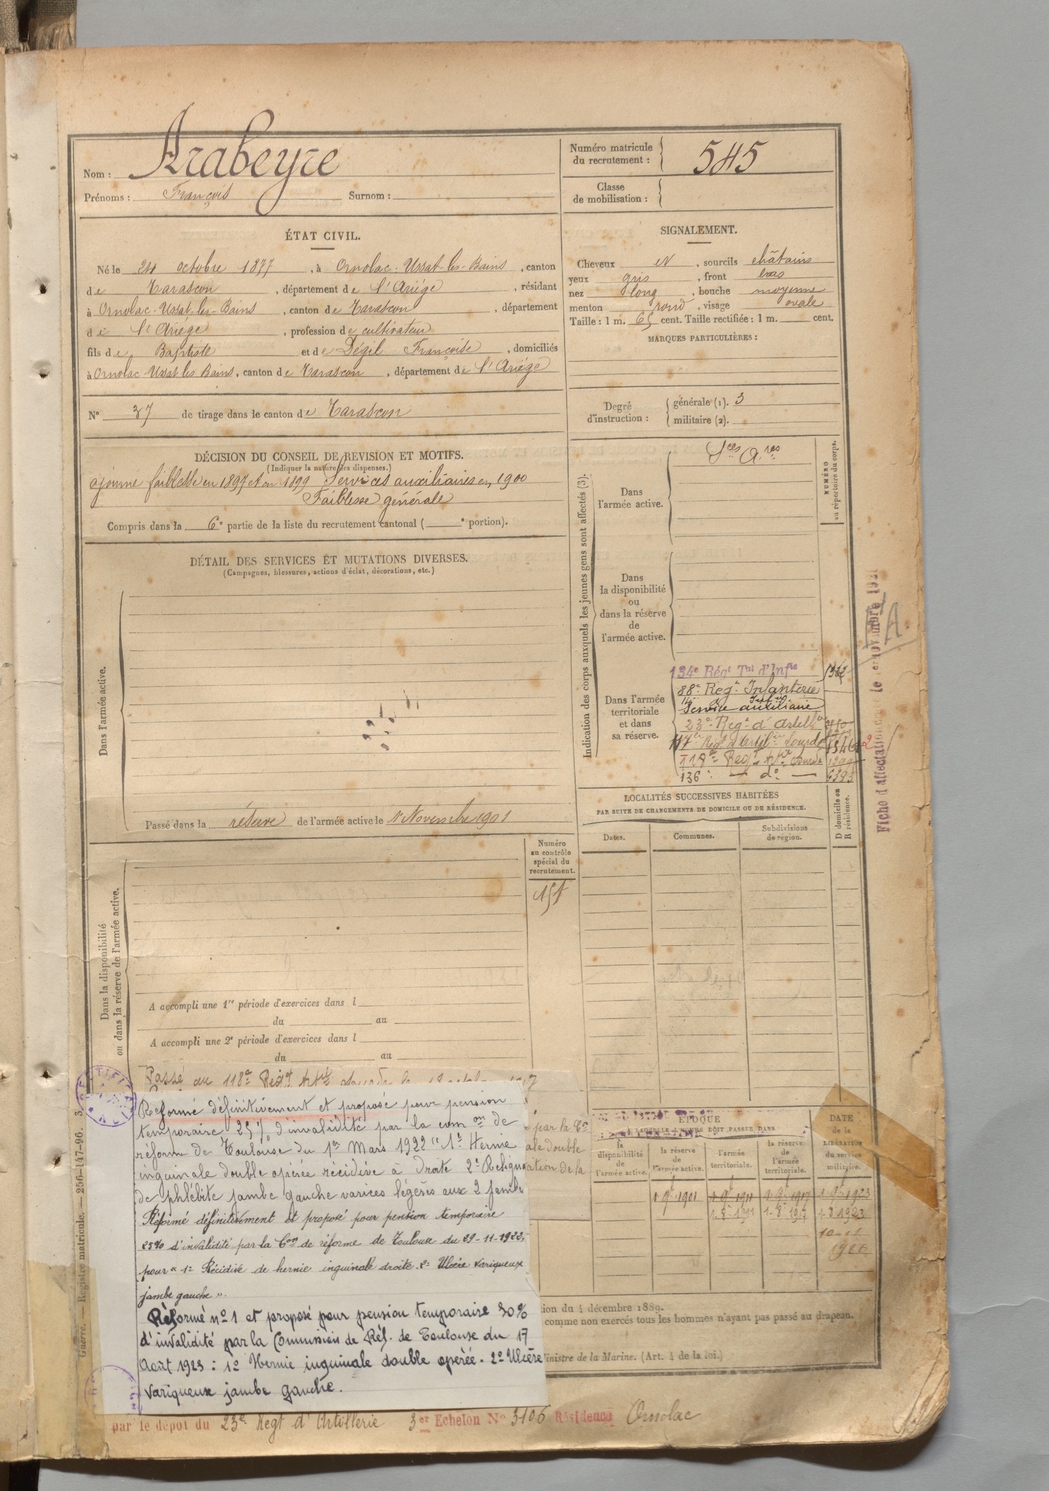 Nom : Arabeyre
Prénoms : François Surnom :
Numéro matricule du recrutement : 545
Classe de mobilisation :
ÉTAT CIVIL.
Né le 24 octobre 1877, à Ornolac-Ussat-les-Bains, canton
de Tarascon, département de l'Ariége, résidant
à Ornolac-Ussat-les-Bains, canton de Tarascon, département
de l'Ariege, profession de cultivateur
fils de Baptiste et de Dégel Françoise, domiciliés
à Ornolac Ussat les Bains, canton de Tarascon, département de l'Ariége
N° 37 de tirage dans le canton de Tarascon
SIGNALEMENT.
Cheveux , sourcils châtains
yeux gris, front bas
nez long, bouche moyenne
menton rond, visage ovale
Taille : 1 m. 65 cent. Taille rectifiée : 1 m. cent.
MARQUES PARTICULIÈRES :
Degré d'instruction : générale (1). 3
militaire (2).
DÉCISION DU CONSEIL DE REVISION ET MOTIFS.
(Indiquer la nature des dispenses.)
ajourné faiblesse en 1897 et en 1899 Services auxiliaires en 1900
Faiblesse générale
Compris dans la 6e partie de la liste du recrutement cantonal ( e portion).
DÉTAIL DES SERVICES ET MUTATIONS DIVERSES.
(Campagnes, blessures, actions d'éclat, décorations, etc.)
Dans l'armée active.
Passé dans la réserve de l'armée active le 1er Novembre 1901
Indication des corps auxquels les jeunes gens sont affectés (3).
NUMÉRO au répertoire du corps.
Sces Ares
Dans l'armée active.
Dans la disponibilité ou dans la réserve de l'armée active.
Dans l'armée territoriale et dans sa réserve.
134e Régt Tal d'Infie
88e Regt Infanterie
Service auxiliaire
23e Regt d'Artelle
117e Regt d'Artie Lourde
118e Regt Artie Lourde
136e — do —
LOCALITÉS SUCCESSIVES HABITÉES
PAR SUITE DE CHANGEMENTS DE DOMICILE OU DE RÉSIDENCE.
Dates. Communes. Subdivisions de région. D domicile ou R résidence.
Numéro au contrôle spécial du recrutement.
151
Dans la disponibilité ou dans la réserve de l'armée active.
A accompli une 1re période d'exercices dans l
du au
A accompli une 2e période d'exercices dans l
du au
Passé au 118e Regt Artie Lourde le
Réformé définitivement et proposé pour pension
temporaire 25% d'invalidité par la comon de
réform de Toulouse du 1er Mars 1922 " 1° Hernie
inguinale double opérée récidivée à droite 2° Reliquat
de phlébite jambe gauche varices légères aux 2 jambes
Réformé définitivement et proposé pour pension temporaire
25% d'invalidité par la Con de réforme de Toulouse du 29-11-1922,
pour « 1° Récidive de hernie inguinale droite. 2° Ulcère variqueux
jambe gauche ».
Réformé n°1 et proposé pour pension temporaire 30%
d'invalidité par la Commission de Réf. de Toulouse du 17
Août 1923 : 1° Hernie inguinale double opérée. 2° Ulcère
variqueux jambe gauche.
ÉPOQUE
À LAQUELLE L'HOMME DOIT PASSER DANS
la disponibilité de l'armée active.
la réserve de l'armée active.
l'armée territoriale.
la réserve de l'armée territoriale.
DATE de la LIBÉRATION du service militaire.
tion du 4 décembre 1889.
comme non exercés tous les hommes n'ayant pas passé au drapeau.
Ministre de la Marine. (Art. 4 de la loi.)
Guerre. — Registre matricule. — 256-147-96.
par le dépôt du 23e Regt d'Artillerie 3er Echelon N° 3106 Résidence Ornolac